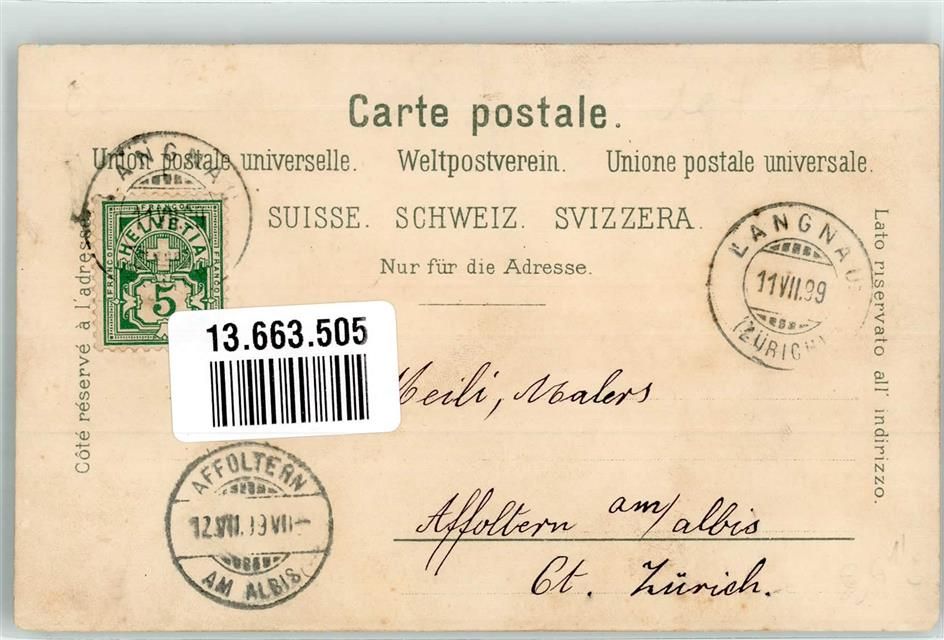 Carte postale.
Union postale universelle. Weltpostverein. Unione postale universale.
SUISSE. SCHWEIZ. SVIZZERA.
Nur für die Adresse.
Côté réservé à l'adresse
Lato riservato all' indirizzo.
LANGNAU
FRANCO
HELVETIA
FRANCO
FRANCO
5
LANGNAU
11 VII. 99
(ZÜRICH)
13.663.505
Meili, Malers
Affoltern am/albis
Ct. Zürich.
AFFOLTERN
12. VII. 99 VII-
AM ALBIS